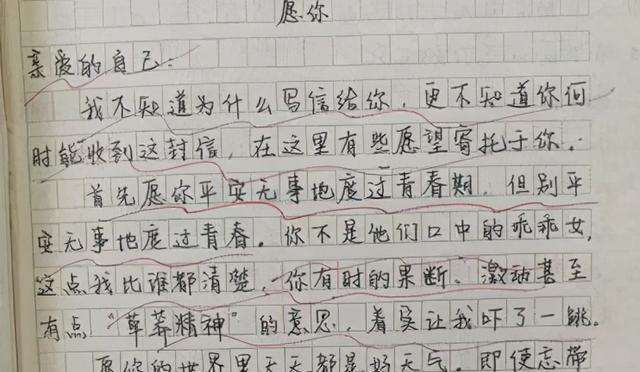 愿你
亲爱的自己:
我不知道为什么写信给你,更不知道你何
时能收到这封信,在这里有些愿望寄托于你.
首先愿你平安无事地度过青春期,但别平
安无事地度过青春。你不是他们口中的乖乖女,
这点我比谁都清楚,你有时的果断、激动甚至
有点“草莽精神”的意思,着实让我吓了一跳。
愿你的世界里天天都是好天气。即使忘带